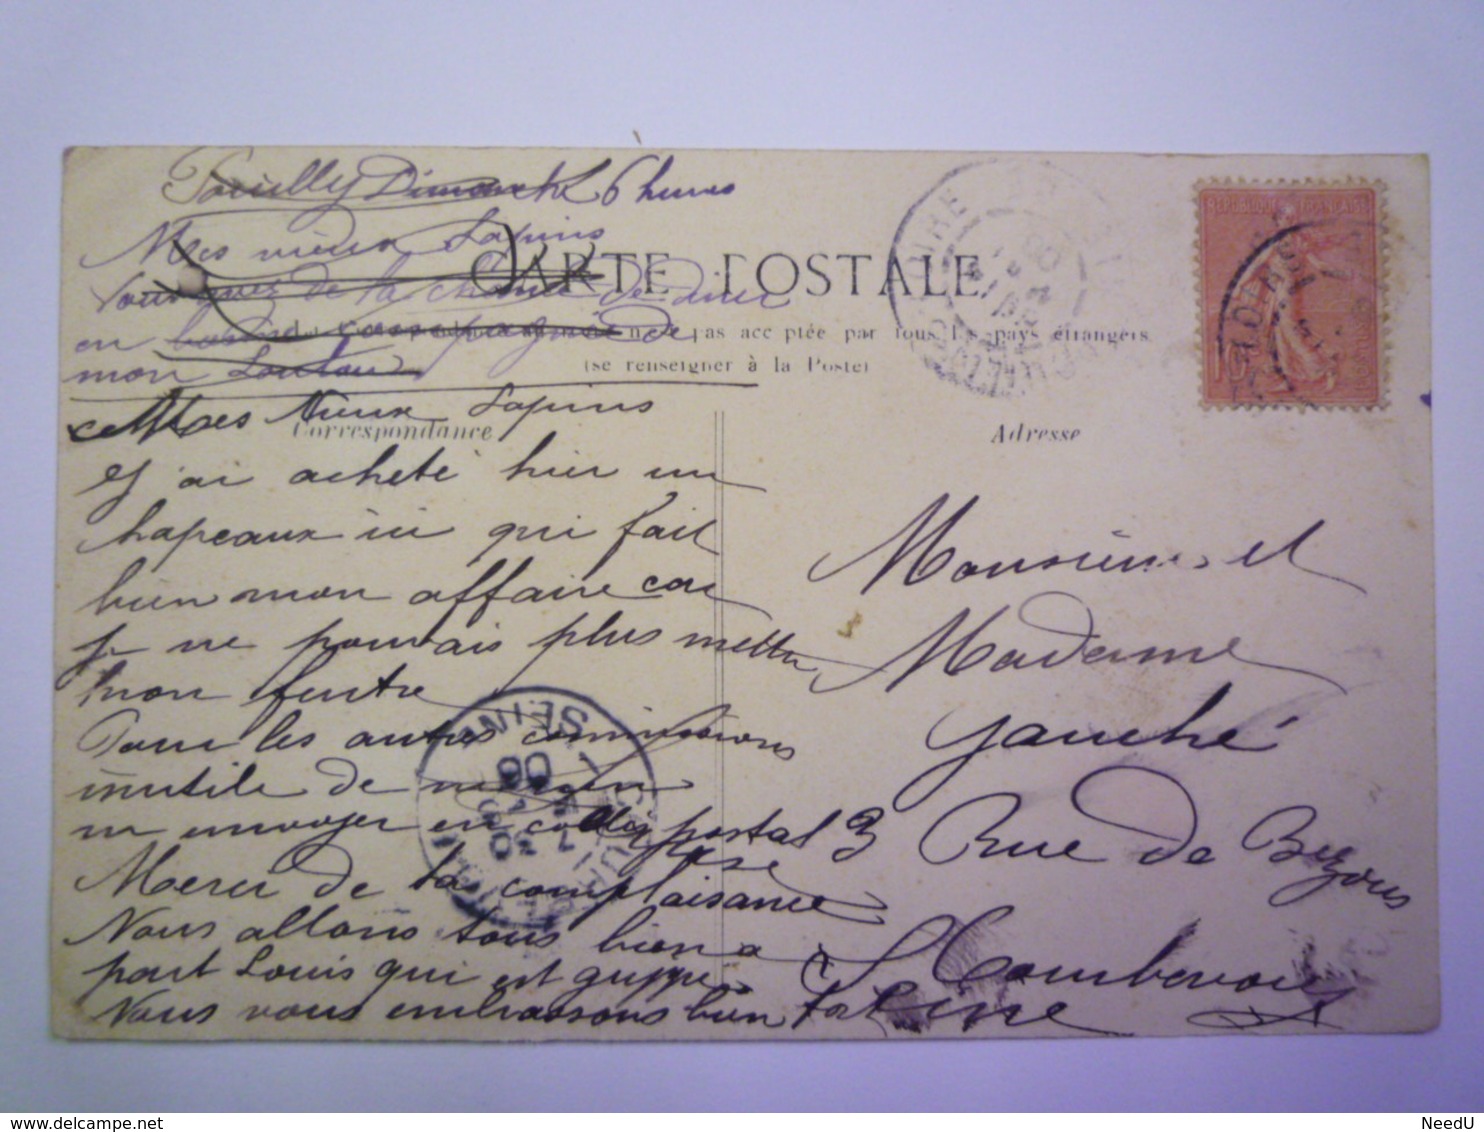 Pouilly Dimanche 6 heures
Mes vieux Lapins
Vous avez de la chance de
en
mon Loulou
CARTE POSTALE
pas acceptée par tous les pays étrangers
(se renseigner à la Poste)
Correspondance
Adresse
RÉPUBLIQUE FRANÇAISE
10
POSTES
Mes Vieux Lapins
J'ai acheté hier un
hapeaux ici qui fait
bien mon affaire car
je ne pouvais plus mettre
mon feutre
Pour les autres commissions
inutile de
m envoyer en colis postal
Merci de ta complaisance
Nous allons tous bien a
part Louis qui est grippe
Nous vous embrassons bien fort
Monsieur et
Madame
Gauché
3 Rue de Bezons
Courbevoie
Seine
SEINE
06
NeedU